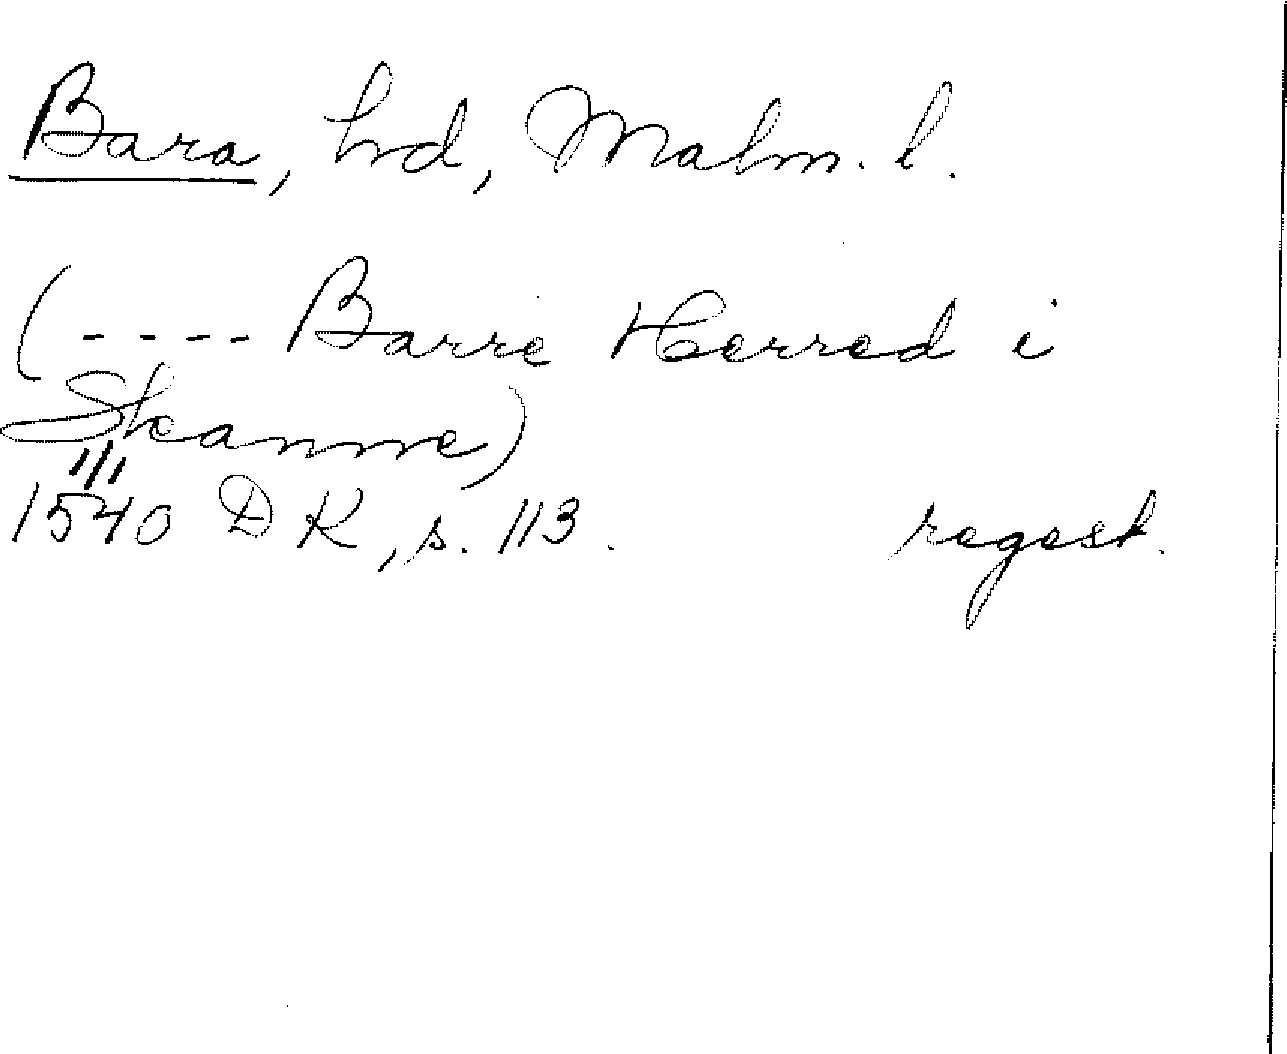 Bara, hd, Malm. l.
(---- Barre Herred i
Skanne)
1540 DK, s. 113. regest.